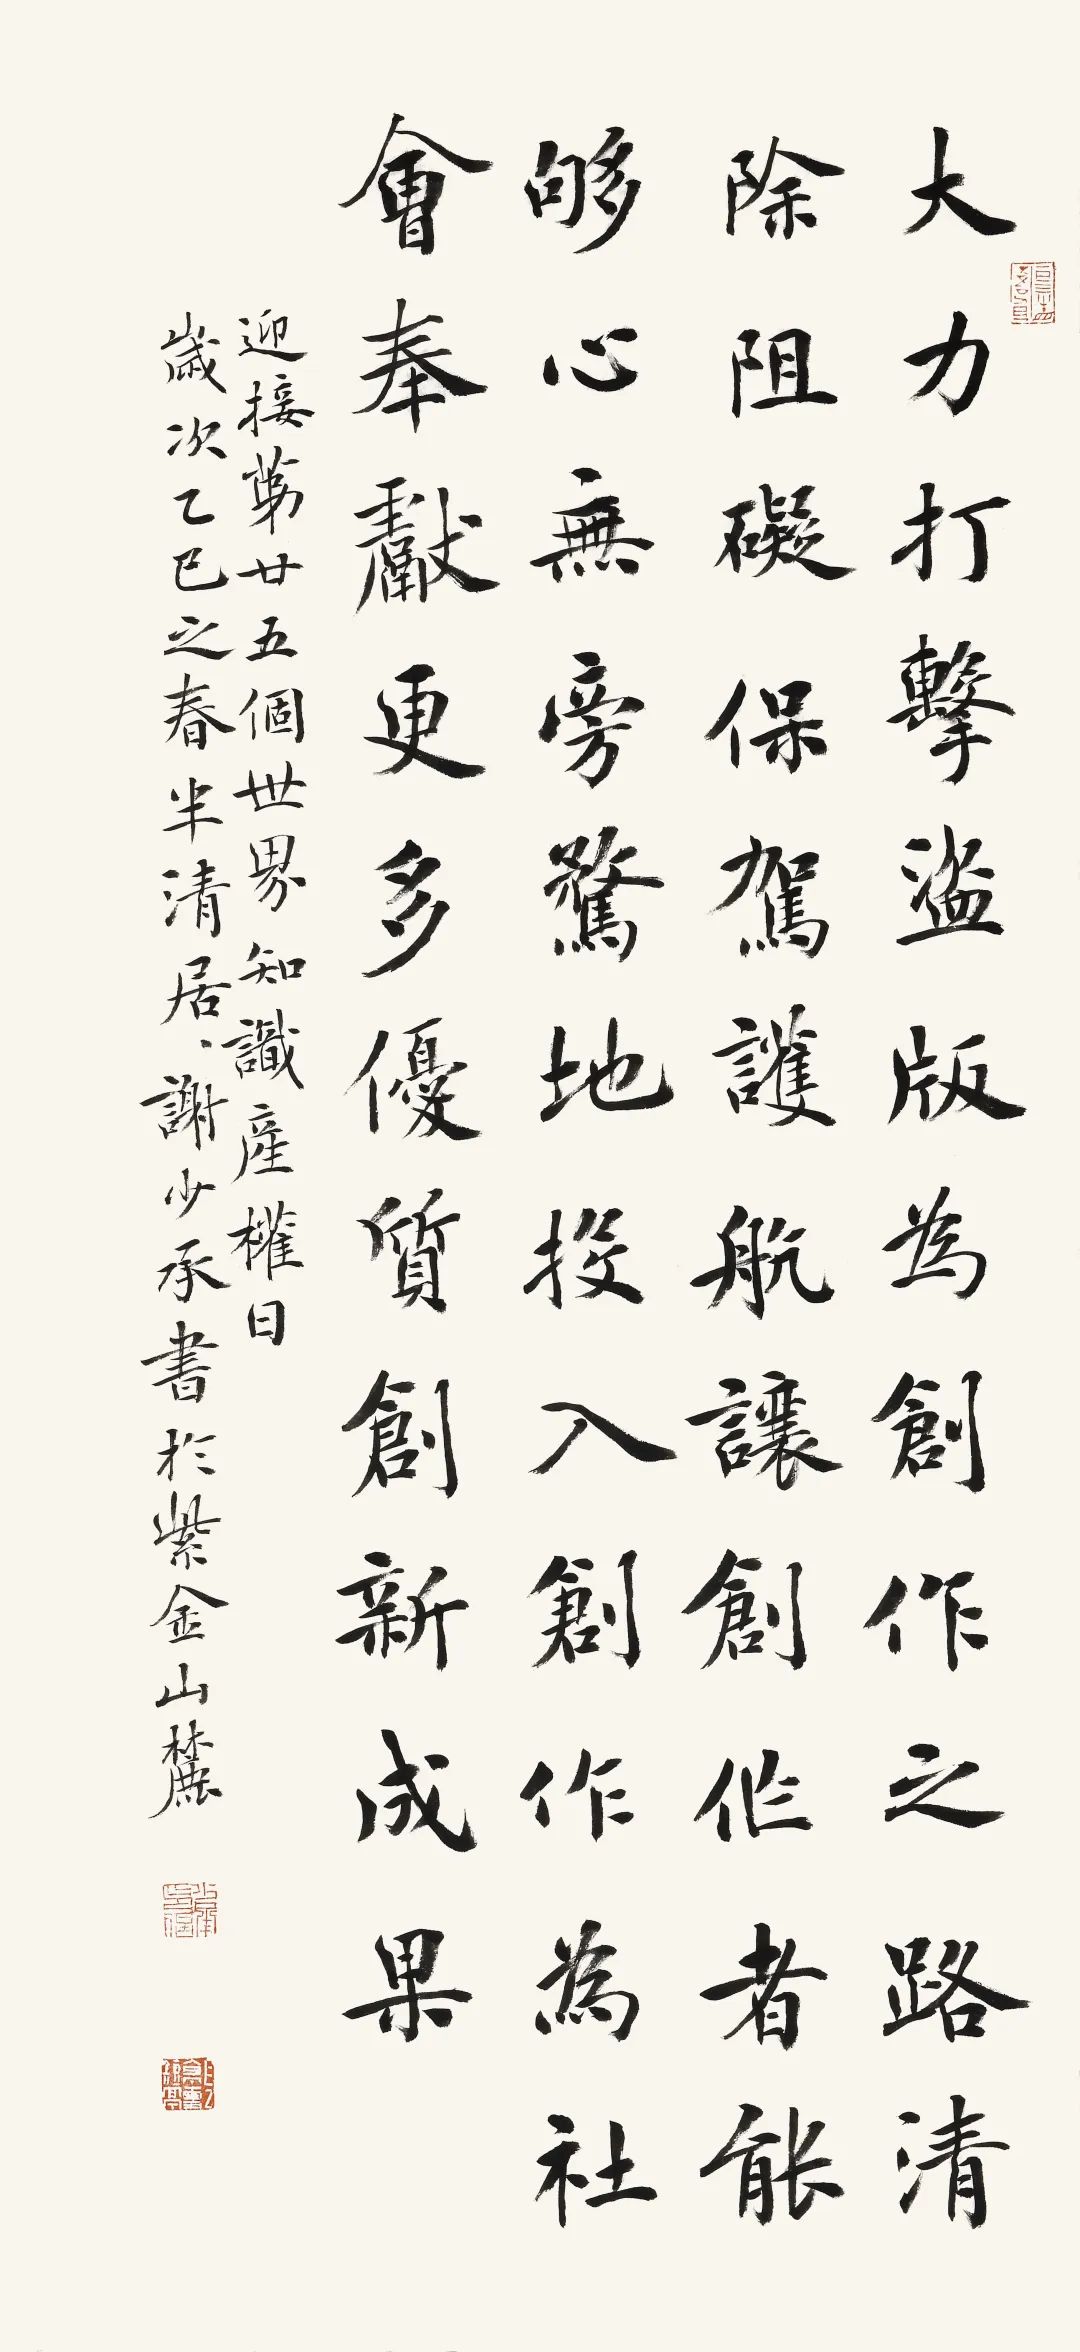 大力打擊盜版為創作之路清
除阻礙保駕護航讓創作者能
够心無旁驚地投入創作為社
會奉獻更多優質創新成果
迎接第廿五個世界知識產權日
歲次乙巳之春半清居謝少承書於紫金山麓